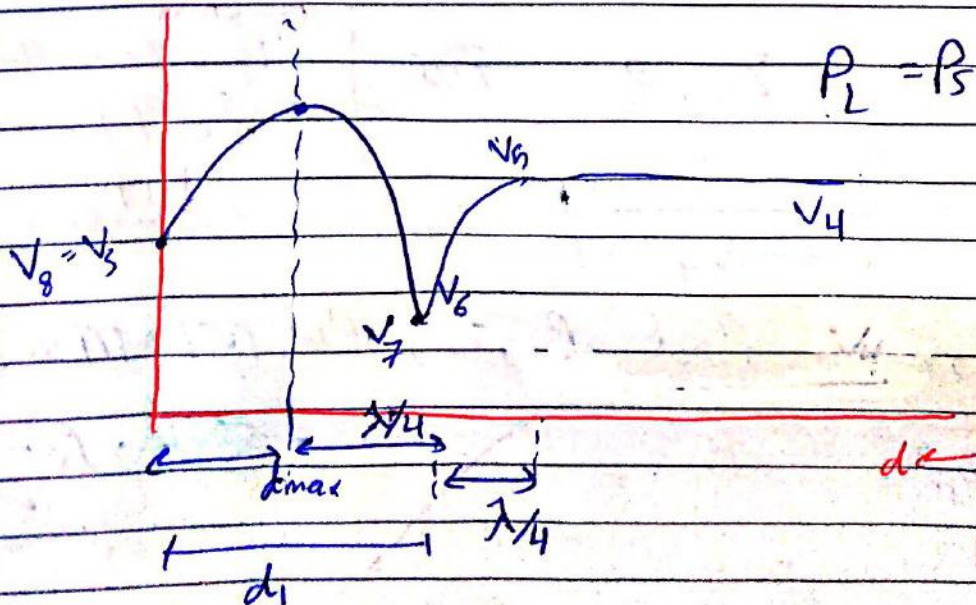 P_L = P_S
V_5
V_4
V_8 = V_5
V_6
V_7
λ/4
d
d_max
λ/4
d_1